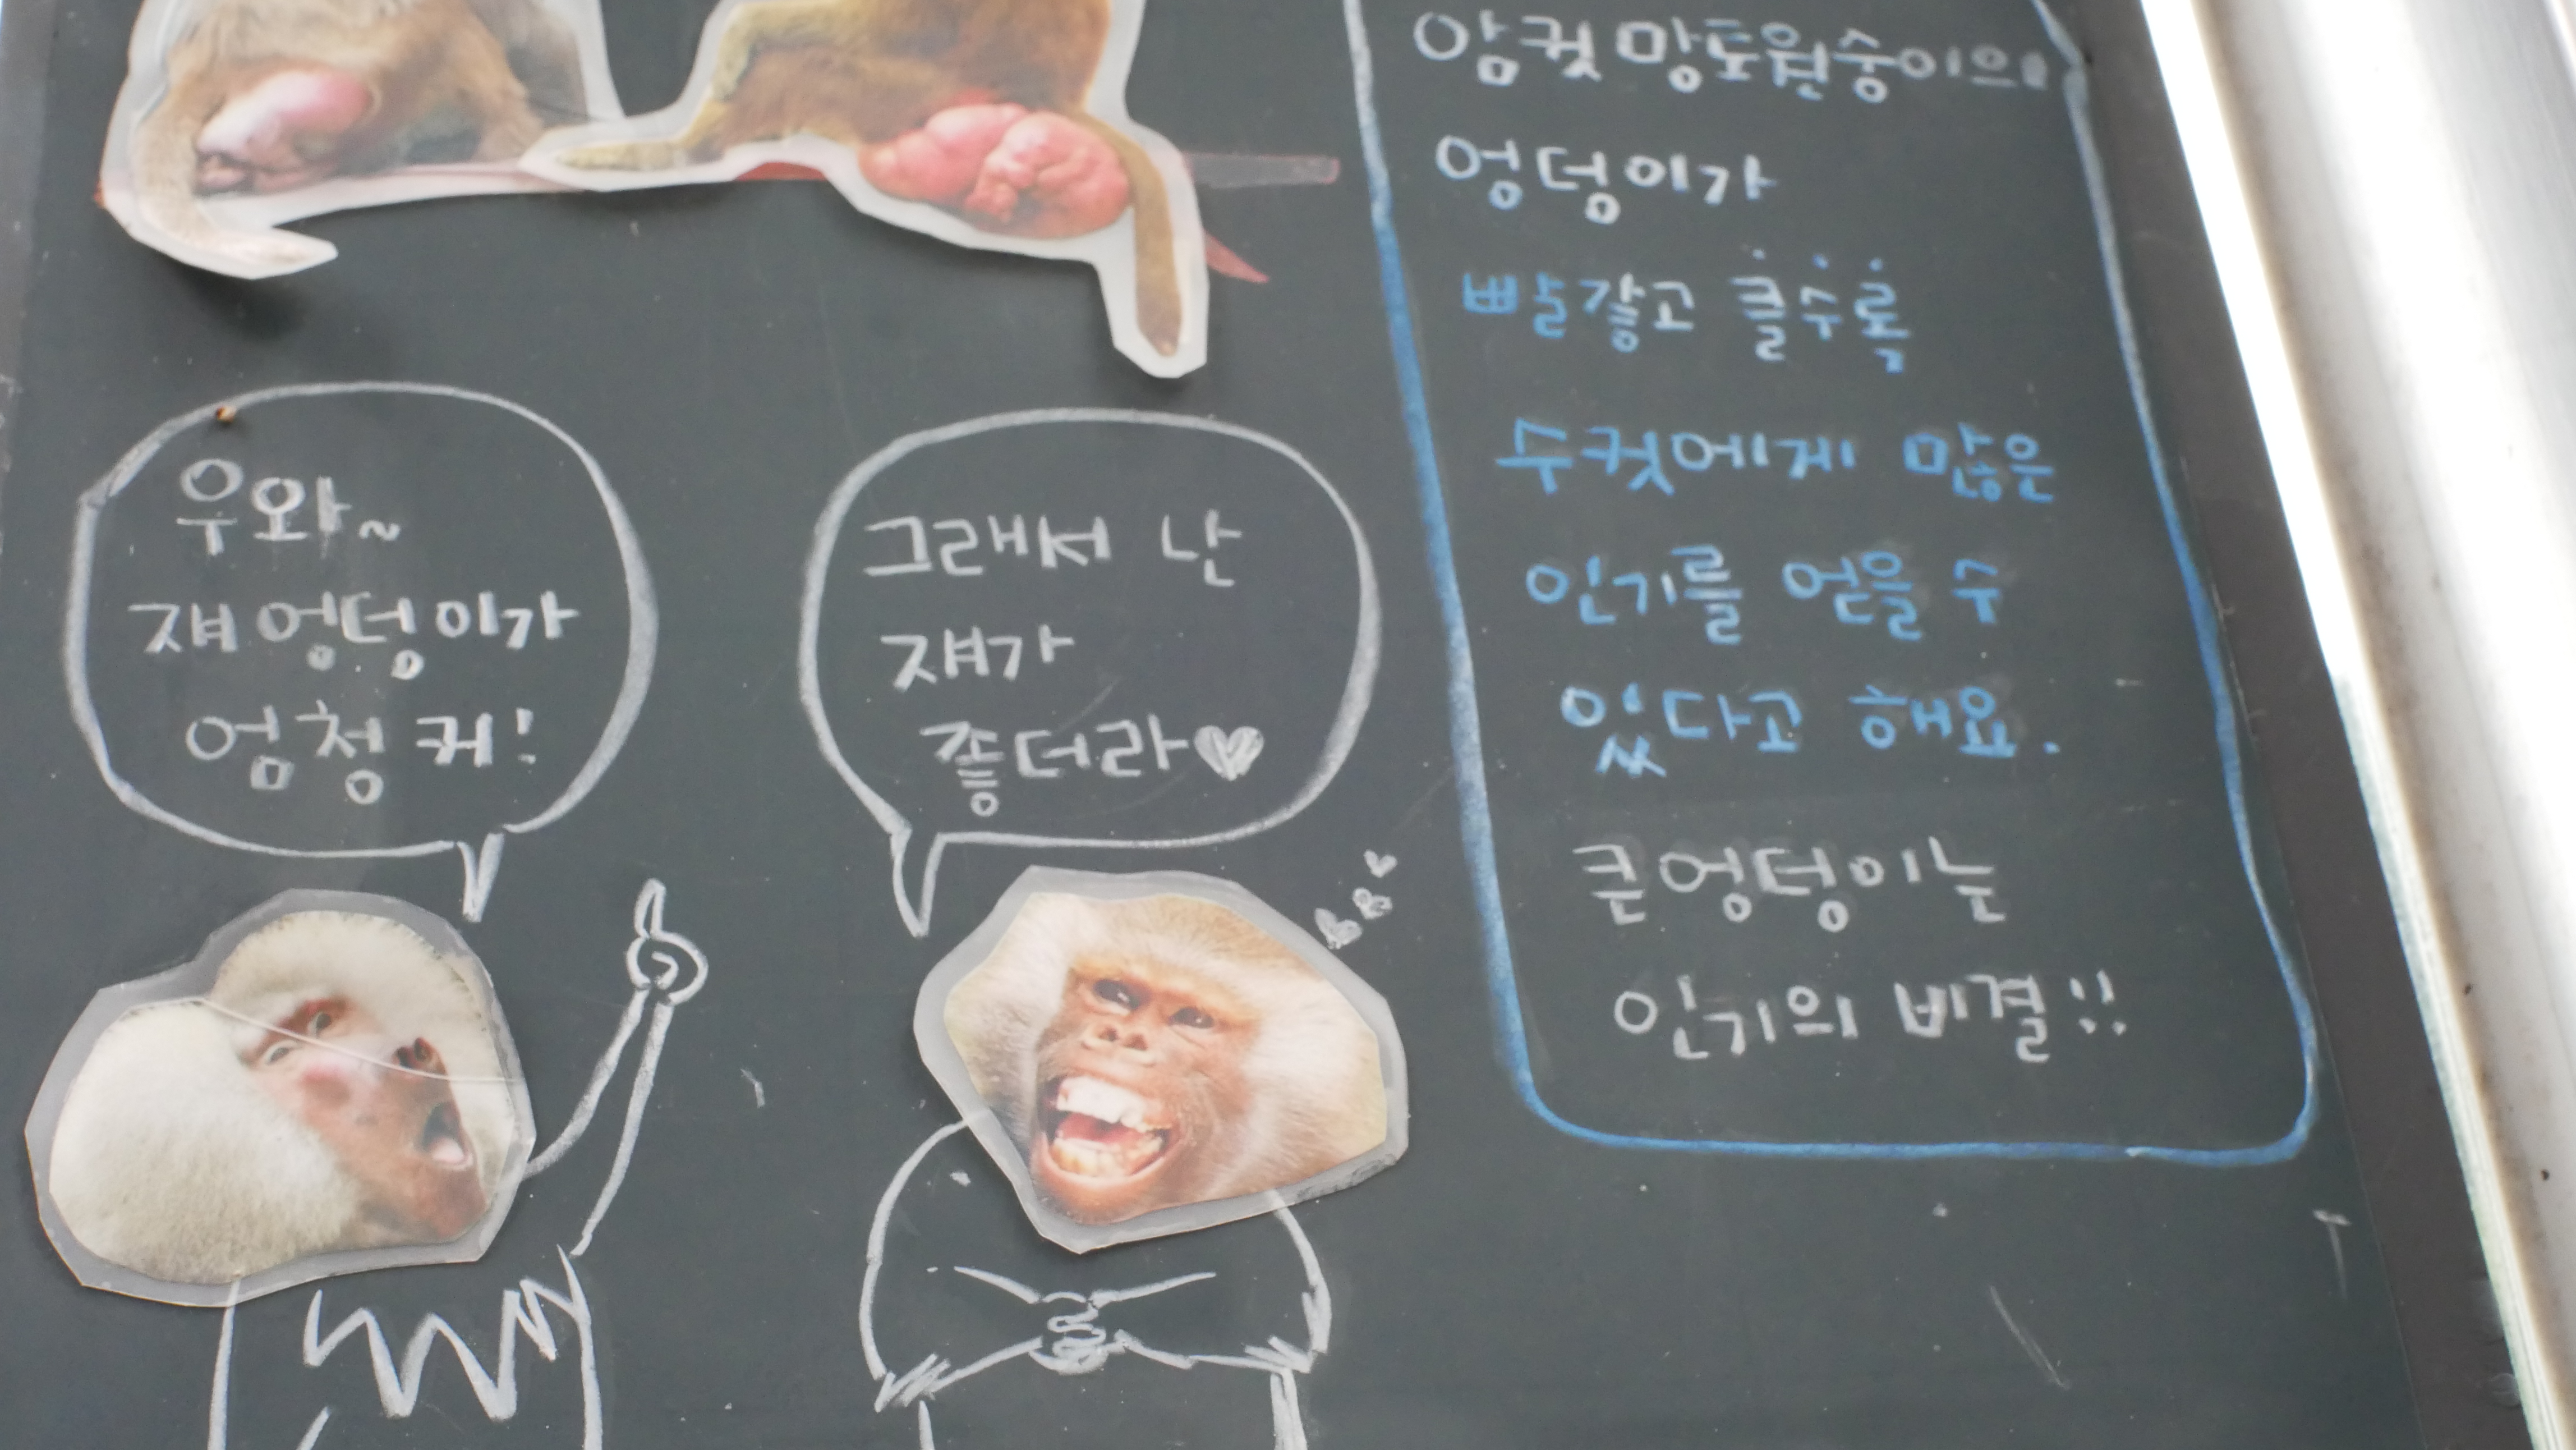 우와~
쟤 엉덩이가
엄청 커!
그래서 난
쟤가
좋더라♥
암컷 망토원숭이의
엉덩이가
빨갛고 클수록
수컷에게 많은
인기를 얻을 수
있다고 해요.
큰 엉덩이는
인기의 비결!!